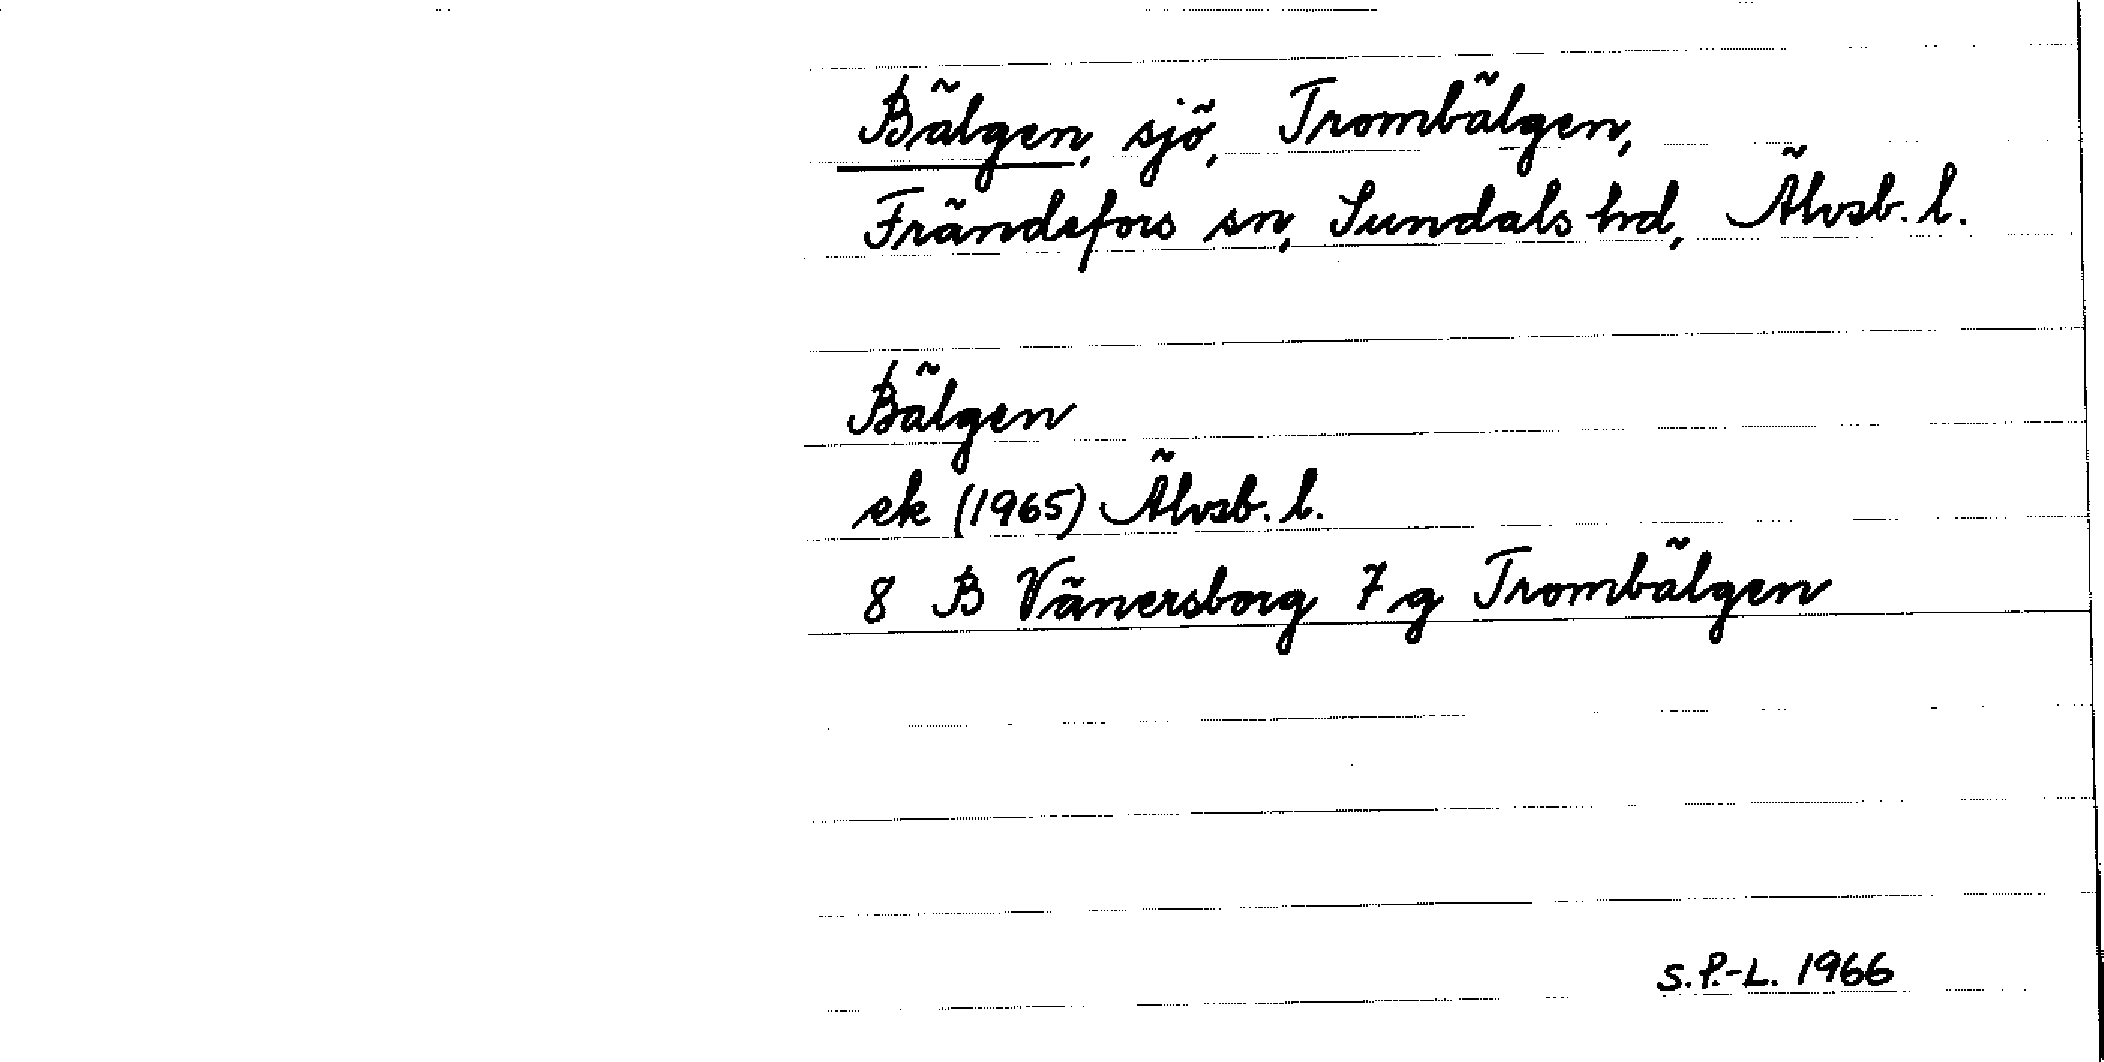 Bälgen, sjö, Trombälgen,
Frändefors sn, Sundals hd, Älvsb. l.
Bälgen
ek (1965) Älvsb. l.
8 B Vänersborg 7 g Trombälgen
S.P.-L. 1966